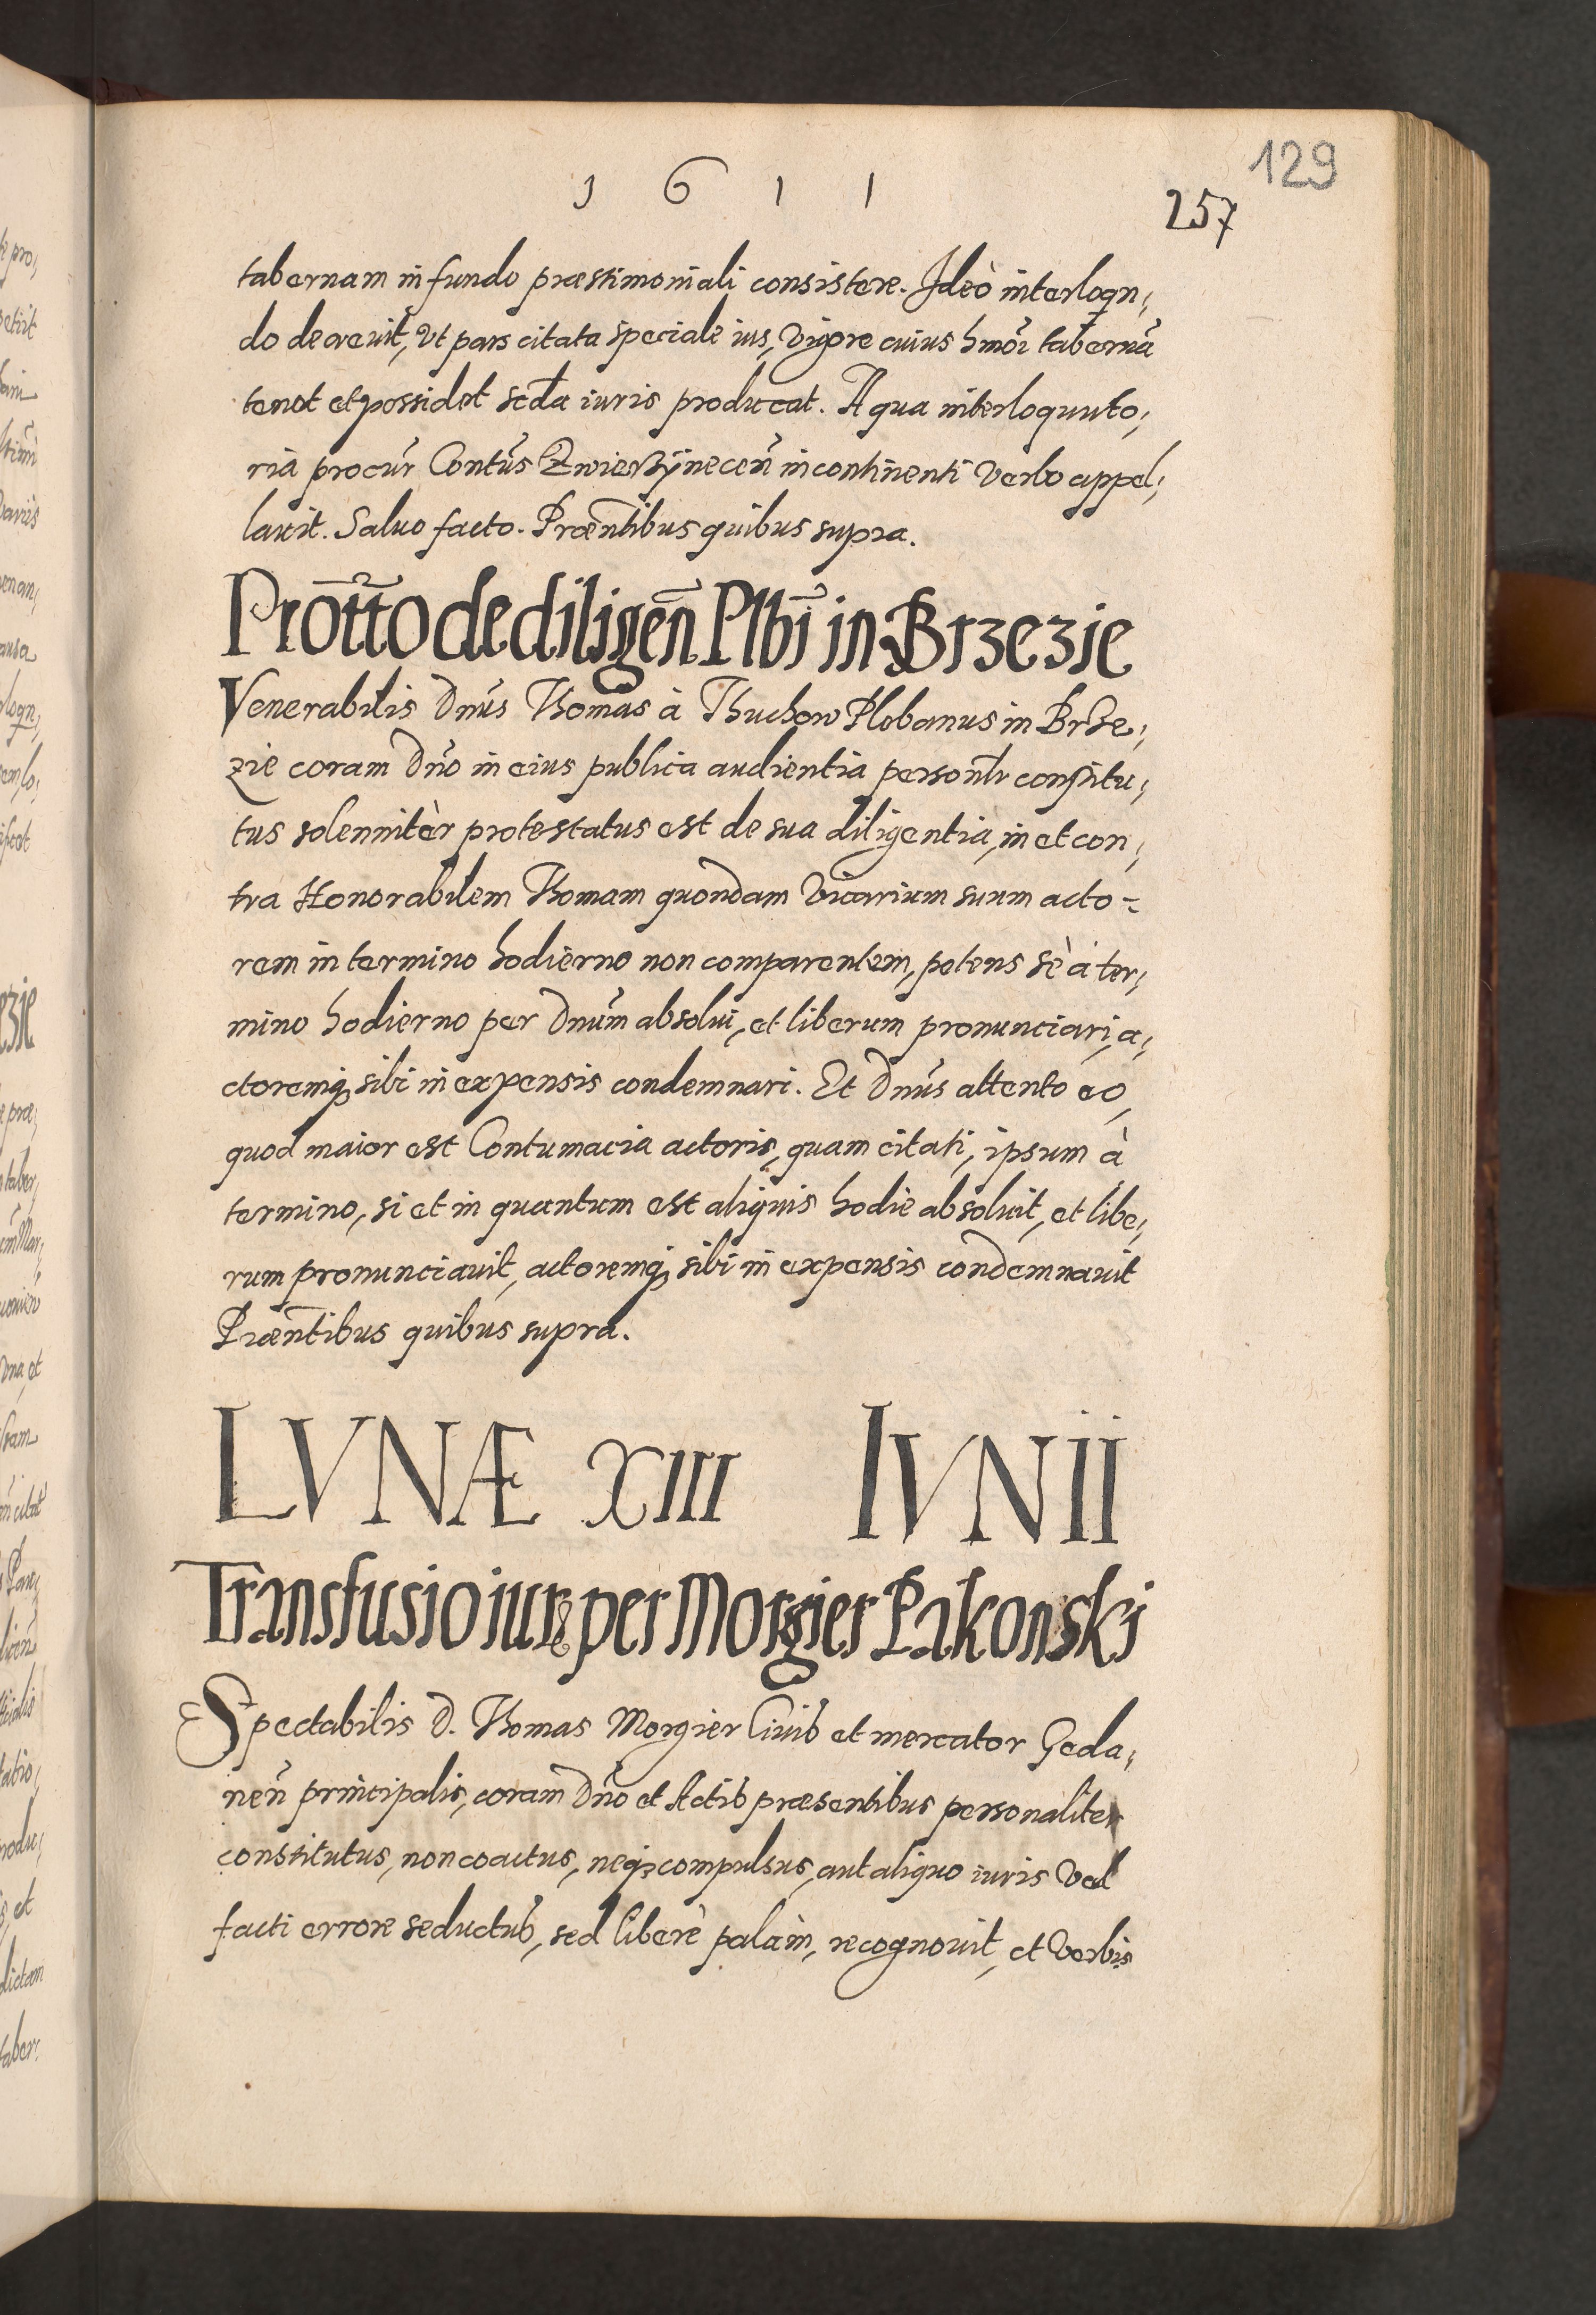 1611
129
257
tabernam in fundo præstimoniali consistere. Ideò interloqn,
do decreuit, Vt pars citata speciale ius, Vigore cuius hmõi tabernã
tenet et possidet scďa iuris producat. A qua interloquuto,
ria procur̃ Contũs Zwierzÿnecen̄ incontinenti Verbo appel,
lauit. Saluo facto. Præn̄tibus quibus supra.
Prot̄to de diligen̄ Plbī in Brzezie
Venerabilis Dnũs Thomas à Thuchow Plebanus in Brze,
zie coram Dnõ in eius publica audientia personl̃r constitu,
tus solennitèr protestatus est de sua diligentia, in et con,
tra Honorabilem Thomam quondam Vicarium suum acto-
rem in termino hodierno non comparentem, petens sè à ter,
mino hodierno per Dnũm absolui, et liberum pronunciari, a,
ctoremq; sibi in expensis condemnari. Et Dnũs attento eo,
quod maior est Contumacia actoris, quam citati, ipsum à
termino, si et in quantum est aliquis hodie absoluit, et libe,
rum pronunciauit, actoremq; sibi in expensis condemnauit
Præn̄tibus quibus supra.
LVNÆ XIII IVNII
Transfusio iuris per Morgier Pakonski
Spectabilis D. Thomas Morgier Ciuis et mercator Geda,
nen̄ principalis, coram Dnõ et Actis præsentibus personaliter
constitutus, non coactus, neq; compulsus, aut aliquo iuris Vel
facti errore seductus, sed liberè palàm, recognouit, et Verbis